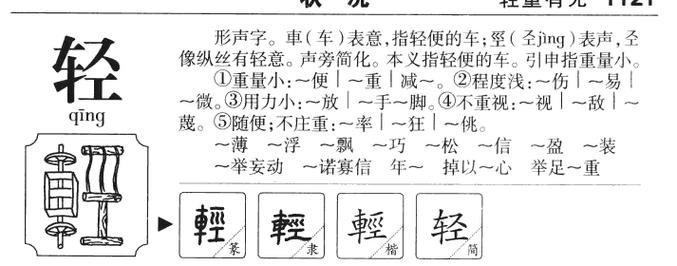 轻重有无 1121
轻
qīng
形声字。車(车)表意,指轻便的车;巠(𢀖jìng)表声,𢀖
像纵丝有轻意。声旁简化。本义指轻便的车。引申指重量小。
①重量小:～便｜～重｜减～。②程度浅:～伤｜～易｜
～微。③用力小:～放｜～手～脚。④不重视:～视｜～敌｜～
蔑。⑤随便;不庄重:～率｜～狂｜～佻。
～薄 ～浮 ～飘 ～巧 ～松 ～信 ～盈 ～装
～举妄动 ～诺寡信 年～ 掉以～心 举足～重
輕 篆 輕 隶 輕 楷 轻 简